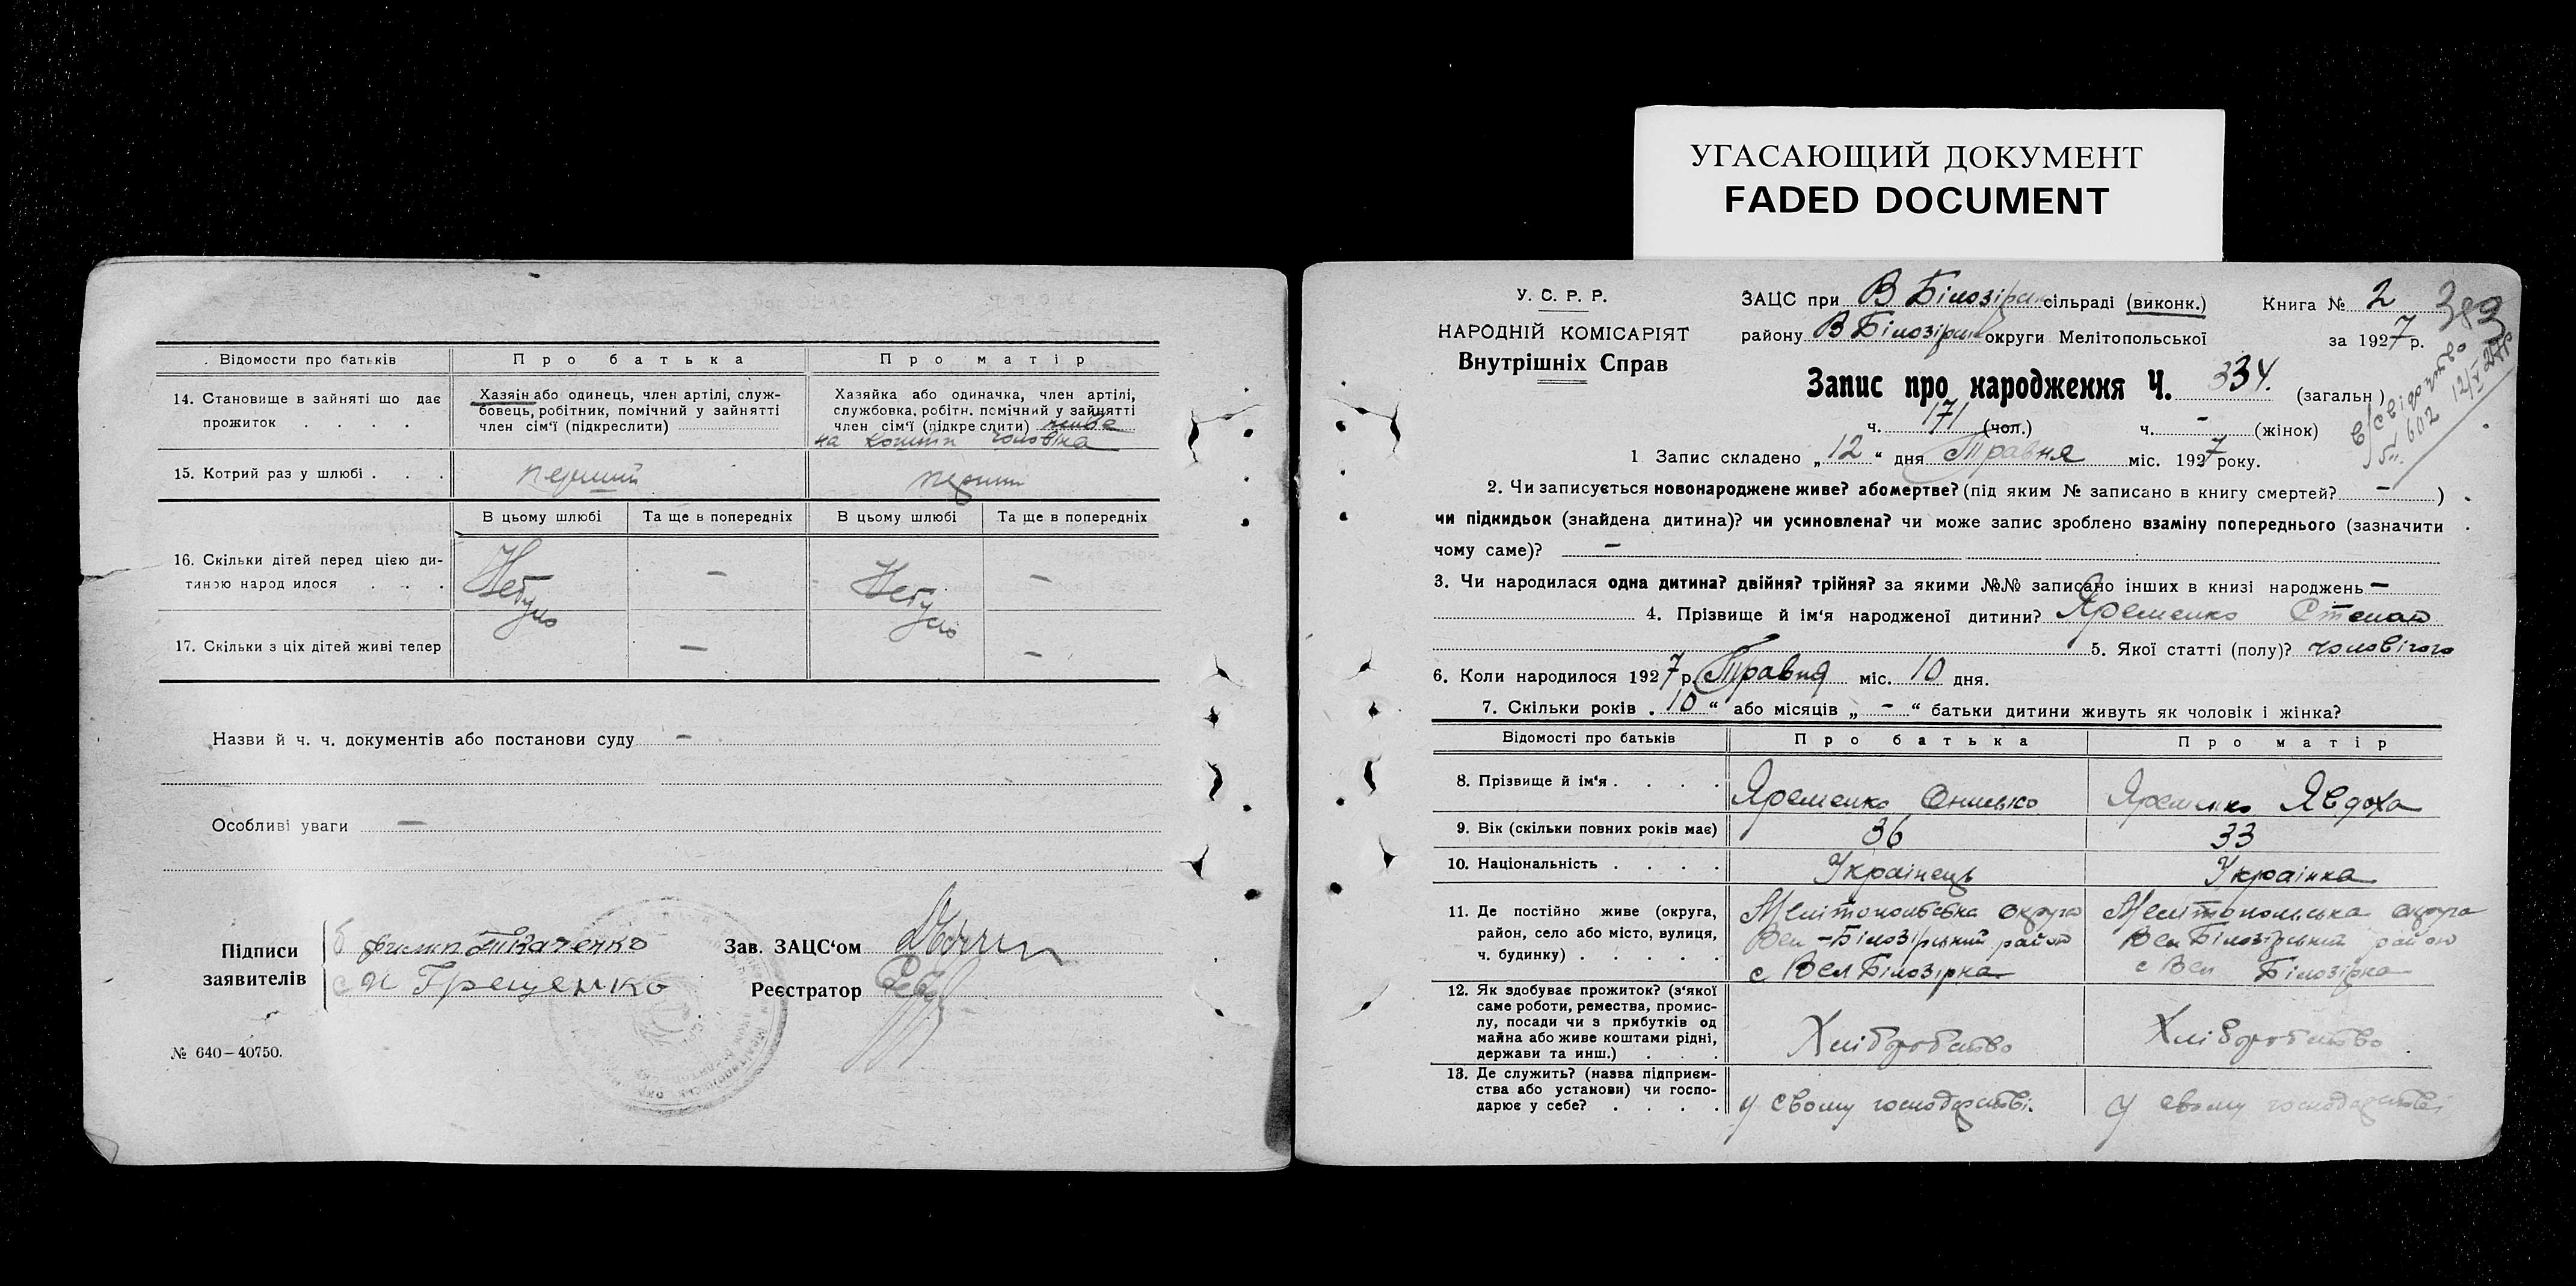 УГАСАЮЩИЙ ДОКУМЕНТ
FADED DOCUMENT
Відомости про батьків
Про батька
Про матір
14. Становище в зайняті що дає прожиток . . . .
Хазяін або одинець, член артілі, служ-
бовець, робітник, помічний у зайнятті
член сім'ї (підкреслити)
Хазяйка або одиначка, член артілі,
службовка, робітн. помічний у зайнятті
член сім'ї (підкре слити) живе
на кошти чоловіка
15. Котрий раз у шлюбі . . .
перший
перший
В цьому шлюбі
Та ще в попередніх
В цьому шлюбі
Та ще в попередніх
16. Скільки дітей перед цією ди-
тиною народ илося . . .
Небуло
—
Небуло
—
17. Скільки з ціх дітей живі тепер
—
—
Назви й ч. ч. документів або постанови суду —
Особливі уваги —
Підписи
заявителів
Ткаченко
Грещенко
Зав. ЗАЦС'ом
Реєстратор
№ 640—40750.
У. С. Р. Р.
НАРОДНІЙ КОМІСАРІЯТ
Внутрішніх Справ
ЗАЦС при В Білозірськ сільраді (виконк.)
району В Білозірськ округи Мелітопольської
Книга № 2
383
за 1927 р.
Запис про народження Ч. 334. (загальн)
ч. 171 (чол.) ч. - (жінок)
1 Запис складено „12“ дня Травня міс. 1927 року.
2. Чи записується новонароджене живе? або мертве? (під яким № записано в книгу смертей? — )
чи підкидьок (знайдена дитина)? чи усиновлена? чи може запис зроблено взаміну попереднього (зазначити
чому саме)? —
3. Чи народилася одна дитина? двійня? трійня? за якими №№ записано інших в книзі народжень —
4. Прізвище й ім'я народженої дитини? Яременко Степан
5. Якої статті (полу)? чоловічого
6. Коли народилося 1927 р. Травня міс. 10 дня.
7. Скільки років „10“ або місяців „-“ батьки дитини живуть як чоловік і жінка?
Відомості про батьків
Про батька
Про матір
8. Прізвище й ім'я . . . .
Яременко Онисько
Яременко Явдоха
9. Вік (скільки повних років має)
36
33
10. Національність . . . .
Українець
Українка
11. Де постійно живе (округа,
район, село або місто, вулиця,
ч. будинку) . . . . .
Мелітопольська округа
Вел-Білозірський район
с Вел Білозірка
Мелітопольська округа
Вел Білозірський район
с Вел Білозірка
12. Як здобуває прожиток? (з'якої
саме роботи, ремества, промис-
лу, посади чи з прибутків од
майна або живе коштами рідні,
держави та инш.) . . .
Хліборобство
Хліборобство
13. Де служить? (назва підприєм-
ства або установи) чи госпо-
дарює у себе? . . . .
у свому господарстві.
у свому господарстві